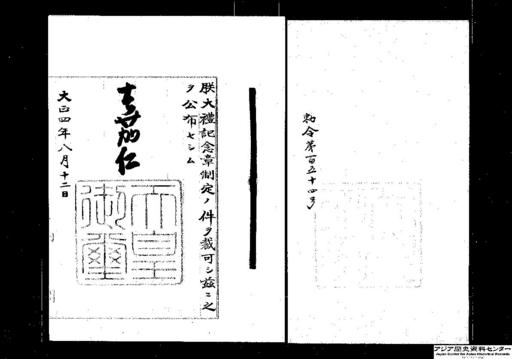 勅令第百五十四号
朕大禮記念章制定ノ件ヲ裁可シ茲ニ之
ヲ公布セシム
嘉仁
天皇
御璽
大正四年八月十二日
アジア歴史資料センター
Japan Center for Asian Historical Records